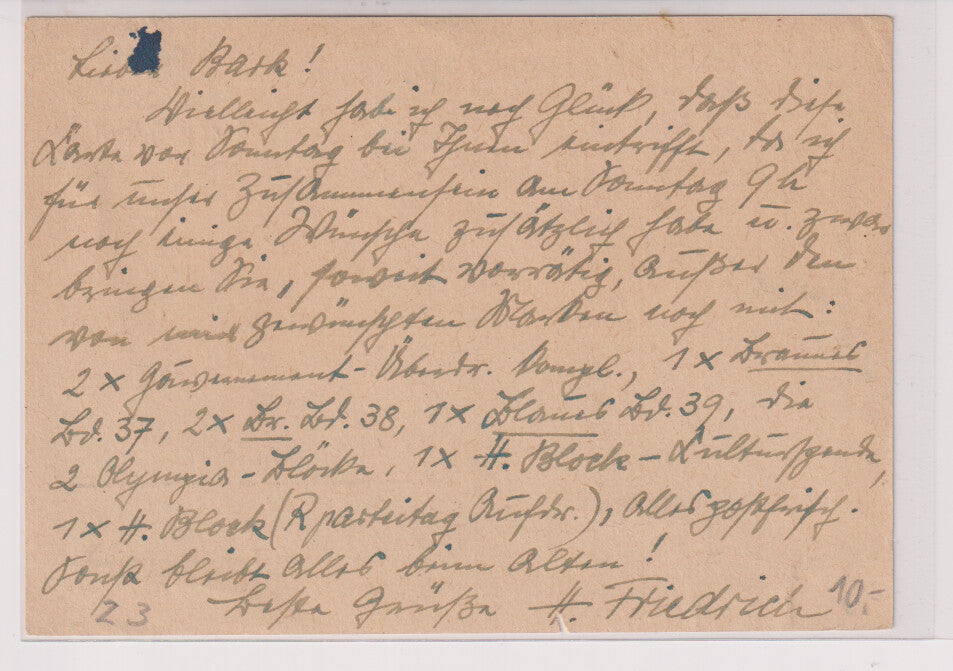 Lieber Bark!
Vielleicht habe ich noch Glück, daß diese
Karte vor Sonntag bei Ihnen eintrifft, da ich
für unser Zusammensein am Sonntag 9h
noch einige Wünsche zusätzlich habe u. zwar
bringen Sie, soweit vorrätig, außer den
von mir gewünschten Marken noch mit:
2 x Gouvernement-Überdr. kompl., 1 x Braunes
Bd. 37, 2x Br. Bd. 38, 1x Blaues Bd. 39, die
2 Olympia-Blöcke, 1x H. Block-Kulturspende,
1x H. Block (Rparteitag Aufdr.), alles postfrisch.
Sonst bleibt alles beim Alten!
Beste Grüße H. Friedrich
23
10.-